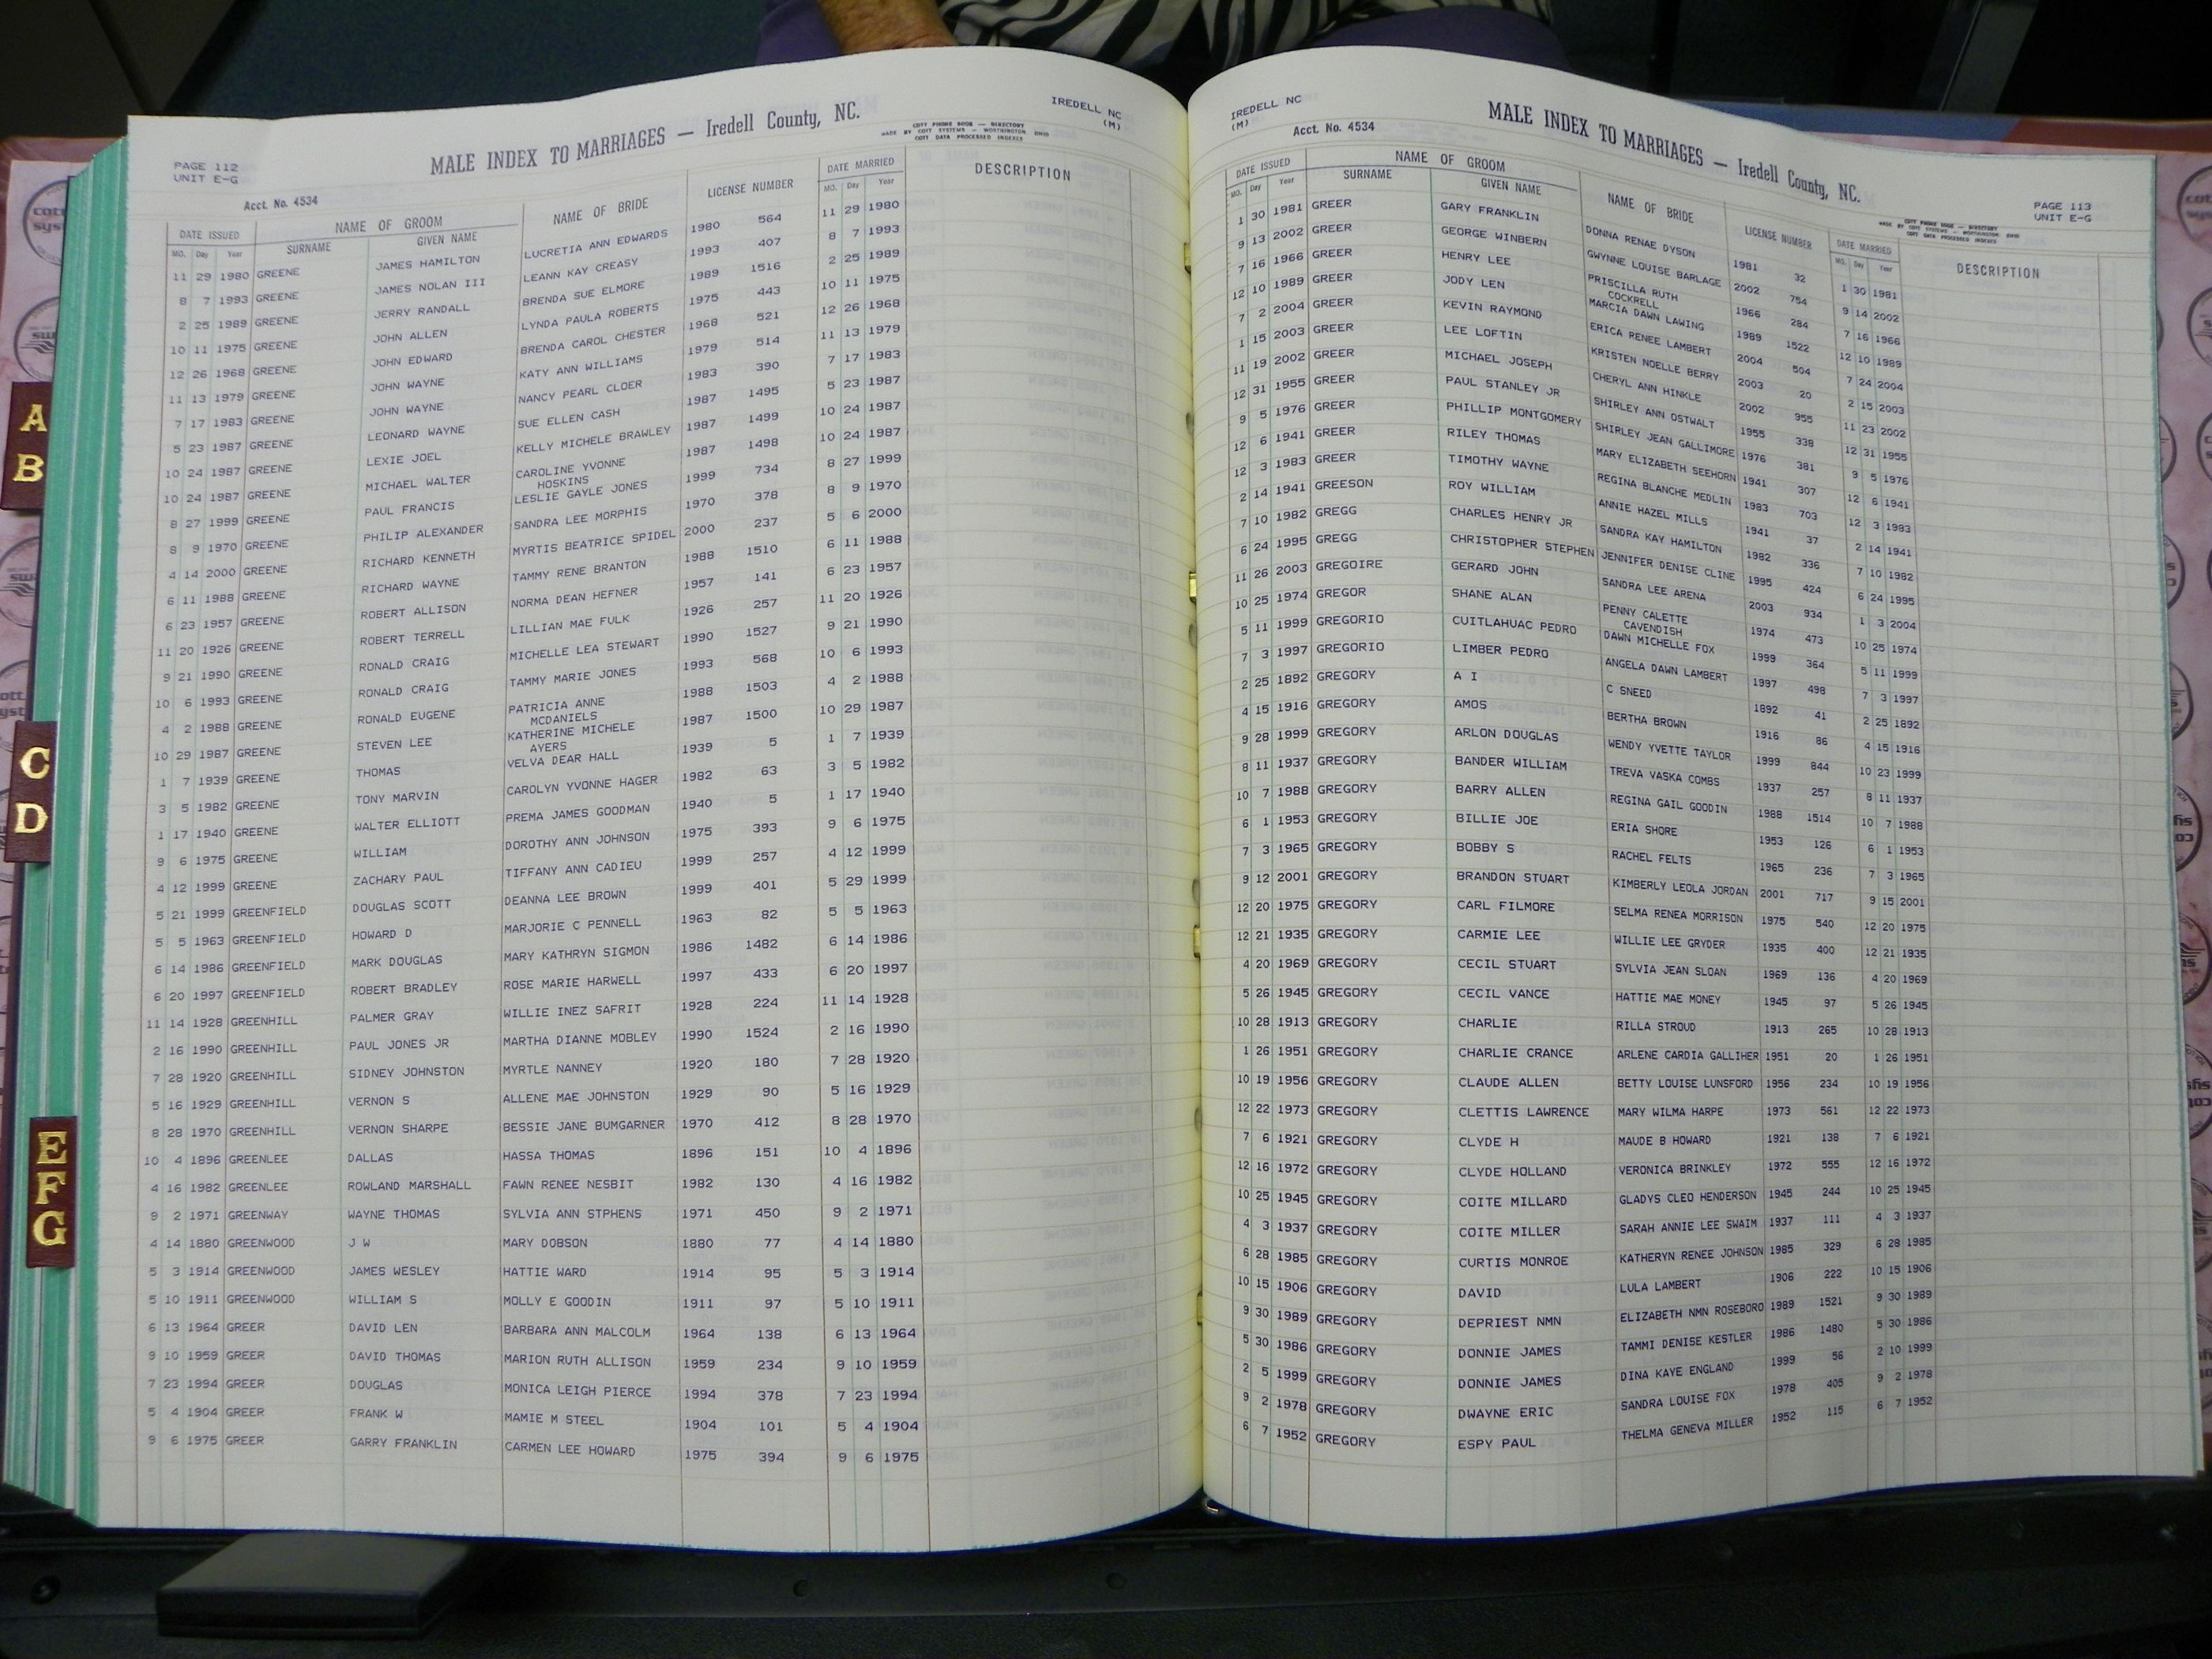 PAGE 112
UNIT E-G
MALE INDEX TO MARRIAGES — Iredell County, NC.
COTT PHONE BOOK — DIRECTORY
MADE BY COTT SYSTEMS — WORTHINGTON OHIO
COTT DATA PROCESSED INDEXES
IREDELL NC
(M)
Acct. No. 4534
DATE ISSUED NAME OF GROOM NAME OF BRIDE LICENSE NUMBER DATE MARRIED DESCRIPTION
MO. Day Year SURNAME GIVEN NAME MO. Day Year
11 29 1980 GREENE JAMES HAMILTON LUCRETIA ANN EDWARDS 1980 564 11 29 1980
8 7 1993 GREENE JAMES NOLAN III LEANN KAY CREASY 1993 407 8 7 1993
2 25 1989 GREENE JERRY RANDALL BRENDA SUE ELMORE 1989 1516 2 25 1989
10 11 1975 GREENE JOHN ALLEN LYNDA PAULA ROBERTS 1975 443 10 11 1975
12 26 1968 GREENE JOHN EDWARD BRENDA CAROL CHESTER 1968 521 12 26 1968
11 13 1979 GREENE JOHN WAYNE KATY ANN WILLIAMS 1979 514 11 13 1979
7 17 1983 GREENE JOHN WAYNE NANCY PEARL CLOER 1983 390 7 17 1983
5 23 1987 GREENE LEONARD WAYNE SUE ELLEN CASH 1987 1495 5 23 1987
10 24 1987 GREENE LEXIE JOEL KELLY MICHELE BRAWLEY 1987 1499 10 24 1987
10 24 1987 GREENE MICHAEL WALTER CAROLINE YVONNE 1987 1498 10 24 1987
HOSKINS
8 27 1999 GREENE PAUL FRANCIS LESLIE GAYLE JONES 1999 734 8 27 1999
8 9 1970 GREENE PHILIP ALEXANDER SANDRA LEE MORPHIS 1970 378 8 9 1970
4 14 2000 GREENE RICHARD KENNETH MYRTIS BEATRICE SPIDEL 2000 237 5 6 2000
6 11 1988 GREENE RICHARD WAYNE TAMMY RENE BRANTON 1988 1510 6 11 1988
6 23 1957 GREENE ROBERT ALLISON NORMA DEAN HEFNER 1957 141 6 23 1957
11 20 1926 GREENE ROBERT TERRELL LILLIAN MAE FULK 1926 257 11 20 1926
9 21 1990 GREENE RONALD CRAIG MICHELLE LEA STEWART 1990 1527 9 21 1990
10 6 1993 GREENE RONALD CRAIG TAMMY MARIE JONES 1993 568 10 6 1993
4 2 1988 GREENE RONALD EUGENE PATRICIA ANNE 1988 1503 4 2 1988
MCDANIELS
10 29 1987 GREENE STEVEN LEE KATHERINE MICHELE 1987 1500 10 29 1987
AYERS
1 7 1939 GREENE THOMAS VELVA DEAR HALL 1939 5 1 7 1939
3 5 1982 GREENE TONY MARVIN CAROLYN YVONNE HAGER 1982 63 3 5 1982
1 17 1940 GREENE WALTER ELLIOTT PREMA JAMES GOODMAN 1940 5 1 17 1940
9 6 1975 GREENE WILLIAM DOROTHY ANN JOHNSON 1975 393 9 6 1975
4 12 1999 GREENE ZACHARY PAUL TIFFANY ANN CADIEU 1999 257 4 12 1999
5 21 1999 GREENFIELD DOUGLAS SCOTT DEANNA LEE BROWN 1999 401 5 29 1999
5 5 1963 GREENFIELD HOWARD D MARJORIE C PENNELL 1963 82 5 5 1963
6 14 1986 GREENFIELD MARK DOUGLAS MARY KATHRYN SIGMON 1986 1482 6 14 1986
6 20 1997 GREENFIELD ROBERT BRADLEY ROSE MARIE HARWELL 1997 433 6 20 1997
11 14 1928 GREENHILL PALMER GRAY WILLIE INEZ SAFRIT 1928 224 11 14 1928
2 16 1990 GREENHILL PAUL JONES JR MARTHA DIANNE MOBLEY 1990 1524 2 16 1990
7 28 1920 GREENHILL SIDNEY JOHNSTON MYRTLE NANNEY 1920 180 7 28 1920
5 16 1929 GREENHILL VERNON S ALLENE MAE JOHNSTON 1929 90 5 16 1929
8 28 1970 GREENHILL VERNON SHARPE BESSIE JANE BUMGARNER 1970 412 8 28 1970
10 4 1896 GREENLEE DALLAS HASSA THOMAS 1896 151 10 4 1896
4 16 1982 GREENLEE ROWLAND MARSHALL FAWN RENEE NESBIT 1982 130 4 16 1982
9 2 1971 GREENWAY WAYNE THOMAS SYLVIA ANN STPHENS 1971 450 9 2 1971
4 14 1880 GREENWOOD J W MARY DOBSON 1880 77 4 14 1880
5 3 1914 GREENWOOD JAMES WESLEY HATTIE WARD 1914 95 5 3 1914
5 10 1911 GREENWOOD WILLIAM S MOLLY E GOODIN 1911 97 5 10 1911
6 13 1964 GREER DAVID LEN BARBARA ANN MALCOLM 1964 138 6 13 1964
9 10 1959 GREER DAVID THOMAS MARION RUTH ALLISON 1959 234 9 10 1959
7 23 1994 GREER DOUGLAS MONICA LEIGH PIERCE 1994 378 7 23 1994
5 4 1904 GREER FRANK W MAMIE M STEEL 1904 101 5 4 1904
9 6 1975 GREER GARRY FRANKLIN CARMEN LEE HOWARD 1975 394 9 6 1975
A
B
C
D
E
F
G
IREDELL NC
(M)
MALE INDEX TO MARRIAGES — Iredell County, NC.
COTT PHONE BOOK — DIRECTORY
MADE BY COTT SYSTEMS — WORTHINGTON OHIO
COTT DATA PROCESSED INDEXES
PAGE 113
UNIT E-G
Acct. No. 4534
DATE ISSUED NAME OF GROOM NAME OF BRIDE LICENSE NUMBER DATE MARRIED DESCRIPTION
MO. Day Year SURNAME GIVEN NAME MO. Day Year
1 30 1981 GREER GARY FRANKLIN DONNA RENAE DYSON 1981 32 1 30 1981
9 13 2002 GREER GEORGE WINBERN GWYNNE LOUISE BARLAGE 2002 754 9 14 2002
7 16 1966 GREER HENRY LEE PRISCILLA RUTH 1966 284 7 16 1966
COCKRELL
12 10 1989 GREER JODY LEN MARCIA DAWN LAWING 1989 1522 12 10 1989
7 2 2004 GREER KEVIN RAYMOND ERICA RENEE LAMBERT 2004 504 7 24 2004
1 15 2003 GREER LEE LOFTIN KRISTEN NOELLE BERRY 2003 20 2 15 2003
11 19 2002 GREER MICHAEL JOSEPH CHERYL ANN HINKLE 2002 955 11 23 2002
12 31 1955 GREER PAUL STANLEY JR SHIRLEY ANN OSTWALT 1955 338 12 31 1955
9 5 1976 GREER PHILLIP MONTGOMERY SHIRLEY JEAN GALLIMORE 1976 381 9 5 1976
12 6 1941 GREER RILEY THOMAS MARY ELIZABETH SEEHORN 1941 307 12 6 1941
12 3 1983 GREER TIMOTHY WAYNE REGINA BLANCHE MEDLIN 1983 703 12 3 1983
2 14 1941 GREESON ROY WILLIAM ANNIE HAZEL MILLS 1941 37 2 14 1941
7 10 1982 GREGG CHARLES HENRY JR SANDRA KAY HAMILTON 1982 336 7 10 1982
6 24 1995 GREGG CHRISTOPHER STEPHEN JENNIFER DENISE CLINE 1995 424 6 24 1995
11 26 2003 GREGOIRE GERARD JOHN SANDRA LEE ARENA 2003 934 1 3 2004
10 25 1974 GREGOR SHANE ALAN PENNY CALETTE 1974 473 10 25 1974
CAVENDISH
5 11 1999 GREGORIO CUITLAHUAC PEDRO DAWN MICHELLE FOX 1999 364 5 11 1999
7 3 1997 GREGORIO LIMBER PEDRO ANGELA DAWN LAMBERT 1997 498 7 3 1997
2 25 1892 GREGORY A I C SNEED 1892 41 2 25 1892
4 15 1916 GREGORY AMOS BERTHA BROWN 1916 86 4 15 1916
9 28 1999 GREGORY ARLON DOUGLAS WENDY YVETTE TAYLOR 1999 844 10 23 1999
8 11 1937 GREGORY BANDER WILLIAM TREVA VASKA COMBS 1937 257 8 11 1937
10 7 1988 GREGORY BARRY ALLEN REGINA GAIL GOODIN 1988 1514 10 7 1988
6 1 1953 GREGORY BILLIE JOE ERIA SHORE 1953 126 6 1 1953
7 3 1965 GREGORY BOBBY S RACHEL FELTS 1965 236 7 3 1965
9 12 2001 GREGORY BRANDON STUART KIMBERLY LEOLA JORDAN 2001 717 9 15 2001
12 20 1975 GREGORY CARL FILMORE SELMA RENEA MORRISON 1975 540 12 20 1975
12 21 1935 GREGORY CARMIE LEE WILLIE LEE GRYDER 1935 400 12 21 1935
4 20 1969 GREGORY CECIL STUART SYLVIA JEAN SLOAN 1969 136 4 20 1969
5 26 1945 GREGORY CECIL VANCE HATTIE MAE MONEY 1945 97 5 26 1945
10 28 1913 GREGORY CHARLIE RILLA STROUD 1913 265 10 28 1913
1 26 1951 GREGORY CHARLIE CRANCE ARLENE CARDIA GALLIHER 1951 20 1 26 1951
10 19 1956 GREGORY CLAUDE ALLEN BETTY LOUISE LUNSFORD 1956 234 10 19 1956
12 22 1973 GREGORY CLETTIS LAWRENCE MARY WILMA HARPE 1973 561 12 22 1973
7 6 1921 GREGORY CLYDE H MAUDE B HOWARD 1921 138 7 6 1921
12 16 1972 GREGORY CLYDE HOLLAND VERONICA BRINKLEY 1972 555 12 16 1972
10 25 1945 GREGORY COITE MILLARD GLADYS CLEO HENDERSON 1945 244 10 25 1945
4 3 1937 GREGORY COITE MILLER SARAH ANNIE LEE SWAIM 1937 111 4 3 1937
6 28 1985 GREGORY CURTIS MONROE KATHERYN RENEE JOHNSON 1985 329 6 28 1985
10 15 1906 GREGORY DAVID LULA LAMBERT 1906 222 10 15 1906
9 30 1989 GREGORY DEPRIEST NMN ELIZABETH NMN ROSEBORO 1989 1521 9 30 1989
5 30 1986 GREGORY DONNIE JAMES TAMMI DENISE KESTLER 1986 1480 5 30 1986
2 5 1999 GREGORY DONNIE JAMES DINA KAYE ENGLAND 1999 56 2 10 1999
9 2 1978 GREGORY DWAYNE ERIC SANDRA LOUISE FOX 1978 405 9 2 1978
6 7 1952 GREGORY ESPY PAUL THELMA GENEVA MILLER 1952 115 6 7 1952